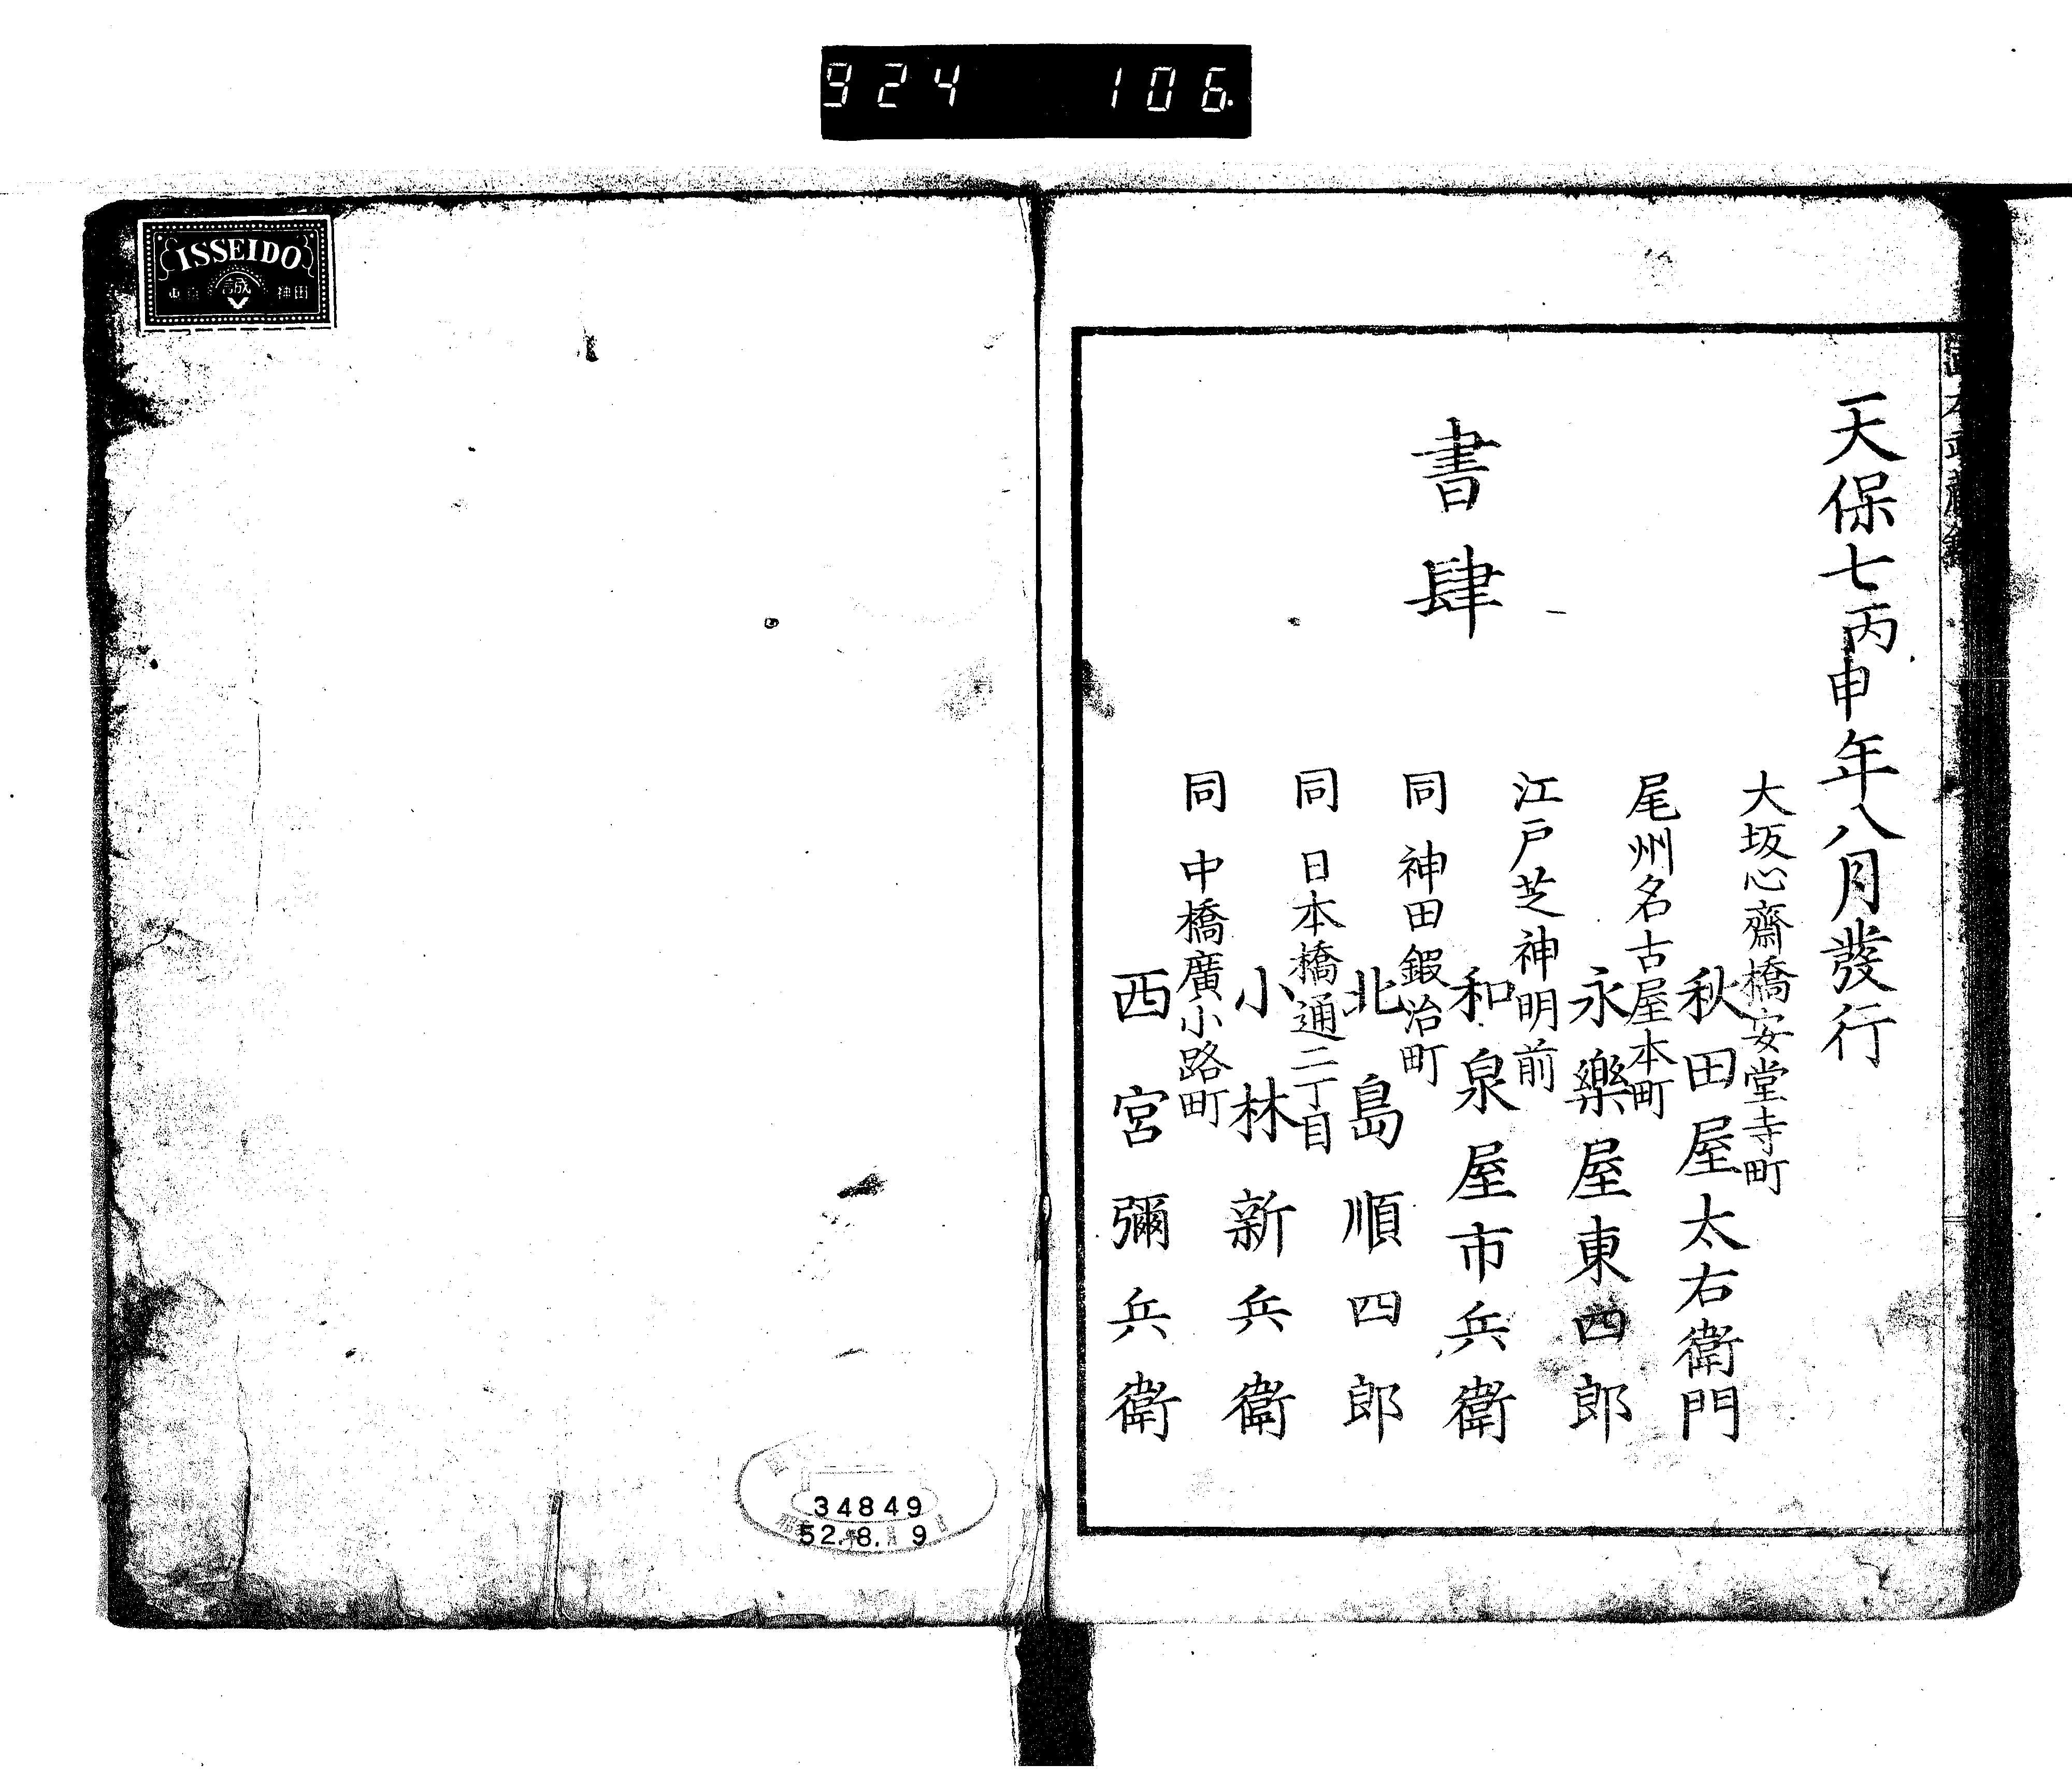 924 106
天保七丙申年八月發行
書肆
大坂心齋橋安堂寺町
秋田屋太右衛門
尾州名古屋本町
永樂屋東四郎
江戸芝神明前
和泉屋市兵衛
同 神田鍜冶町
北島順四郎
同 日本橋通二丁目
小林新兵衛
同 中橋廣小路町
西宮彌兵衛
ISSEIDO
誠
神田
34849
52.8.9